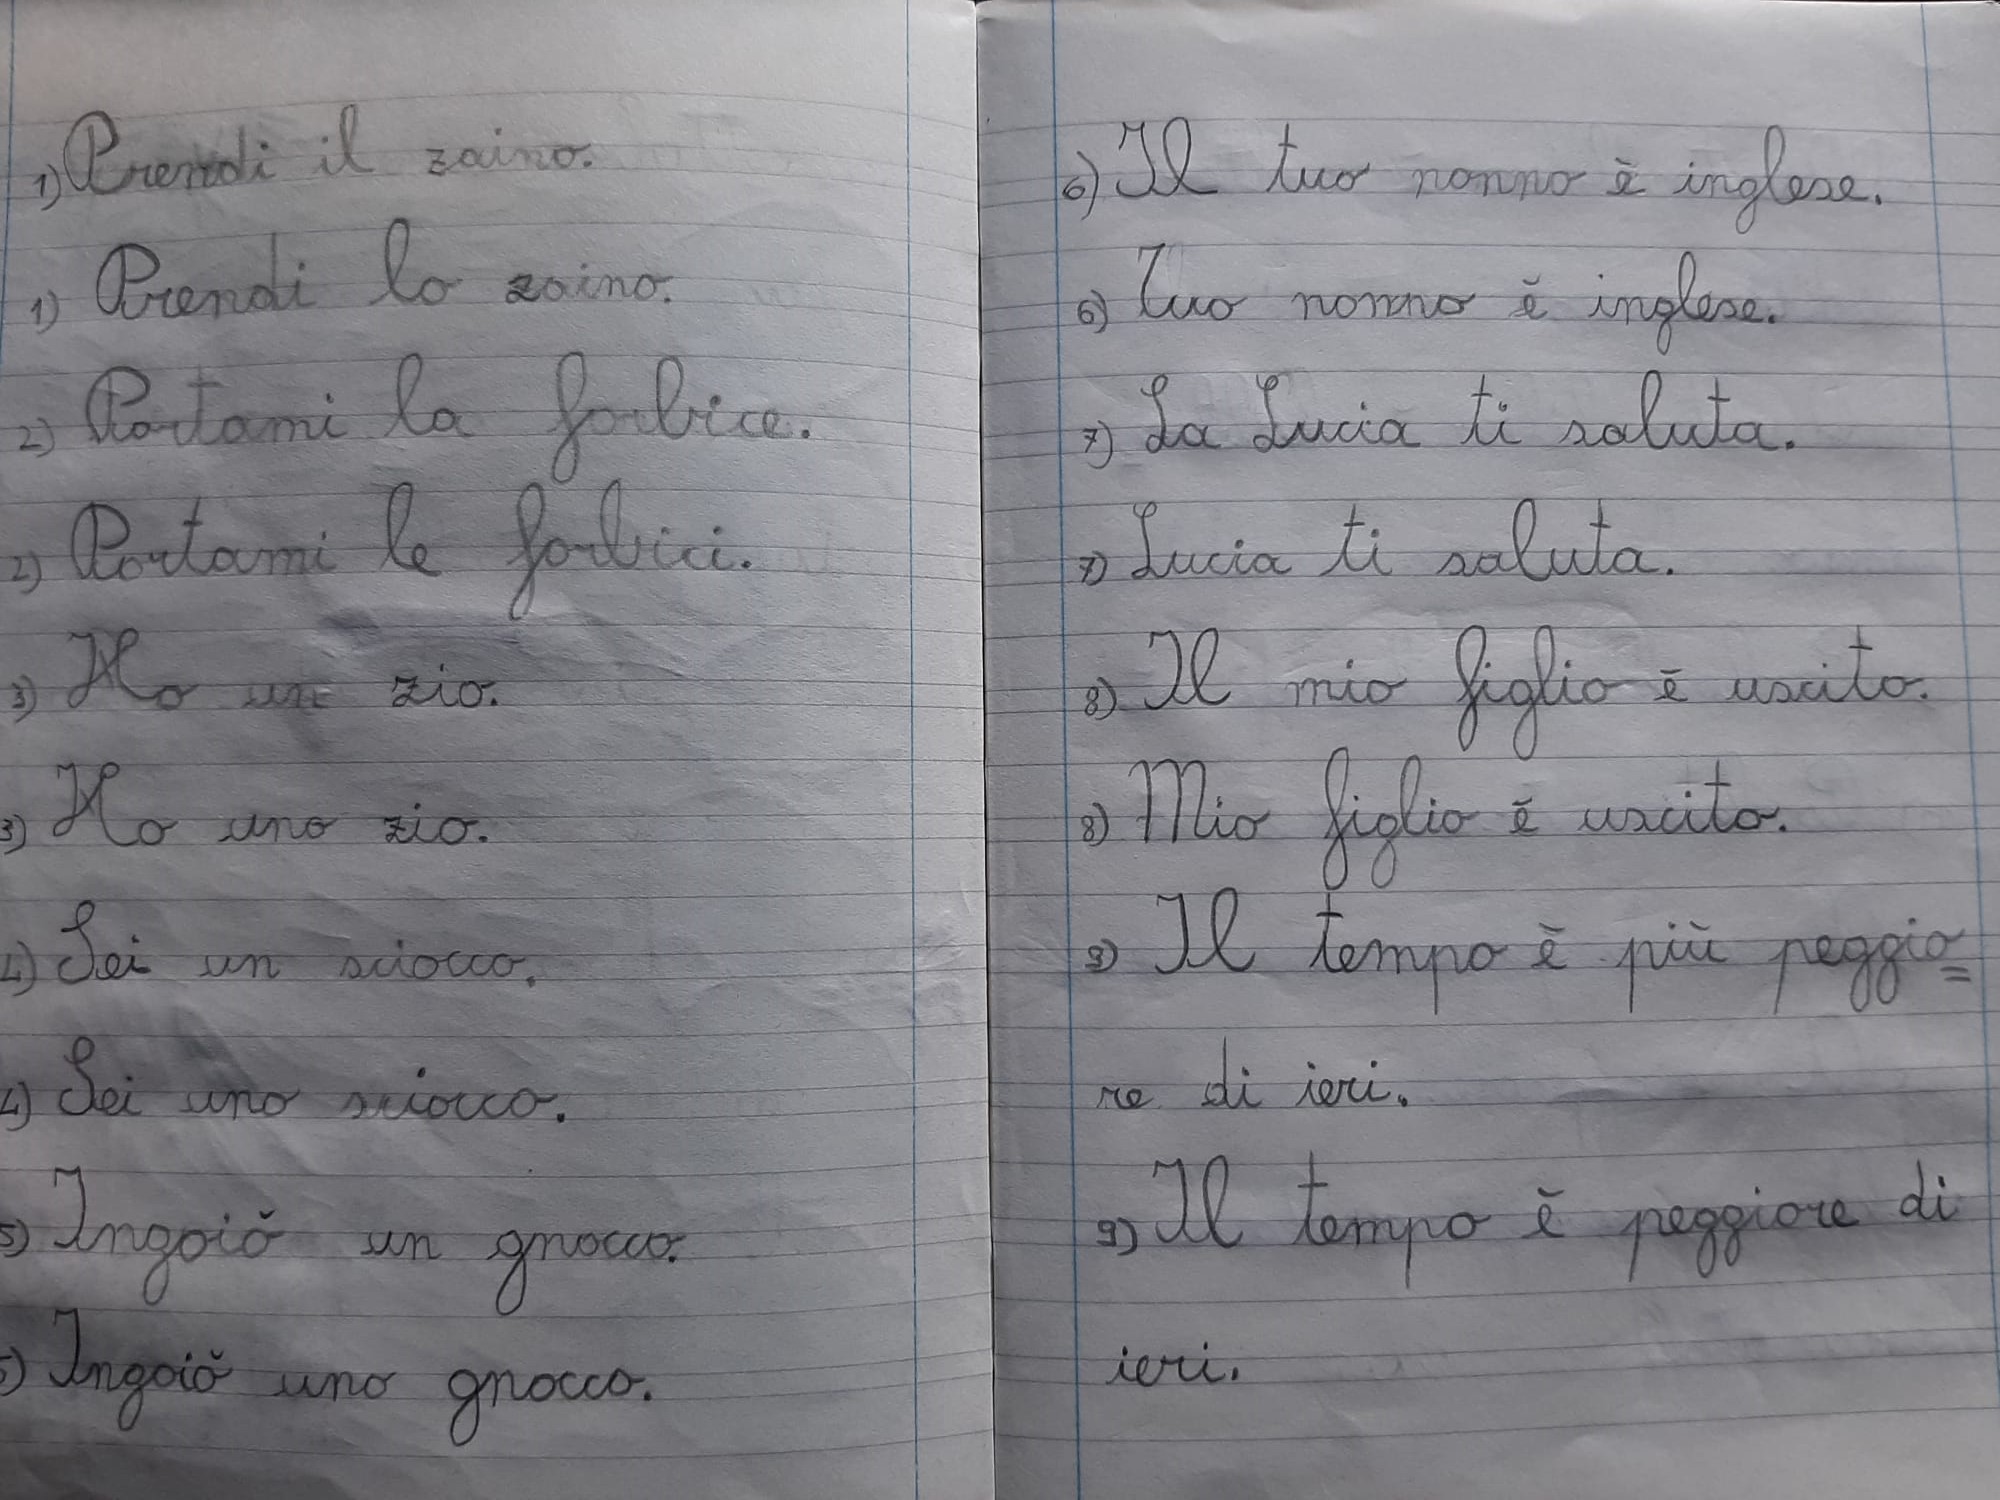 1) Prendi il zaino.
1) Prendi lo zaino.
2) Portami la forbice.
2) Portami le forbici.
3) Ho un zio.
3) Ho uno zio.
4) Sei un sciocco.
4) Sei uno sciocco.
5) Ingoiò un gnocco.
5) Ingoiò uno gnocco.
6) Il tuo nonno è inglese.
6) Tuo nonno è inglese.
7) La Lucia ti saluta.
7) Lucia ti saluta.
8) Il mio figlio è uscito.
8) Mio figlio è uscito.
9) Il tempo è più peggio=
re di ieri.
9) Il tempo è peggiore di
ieri.